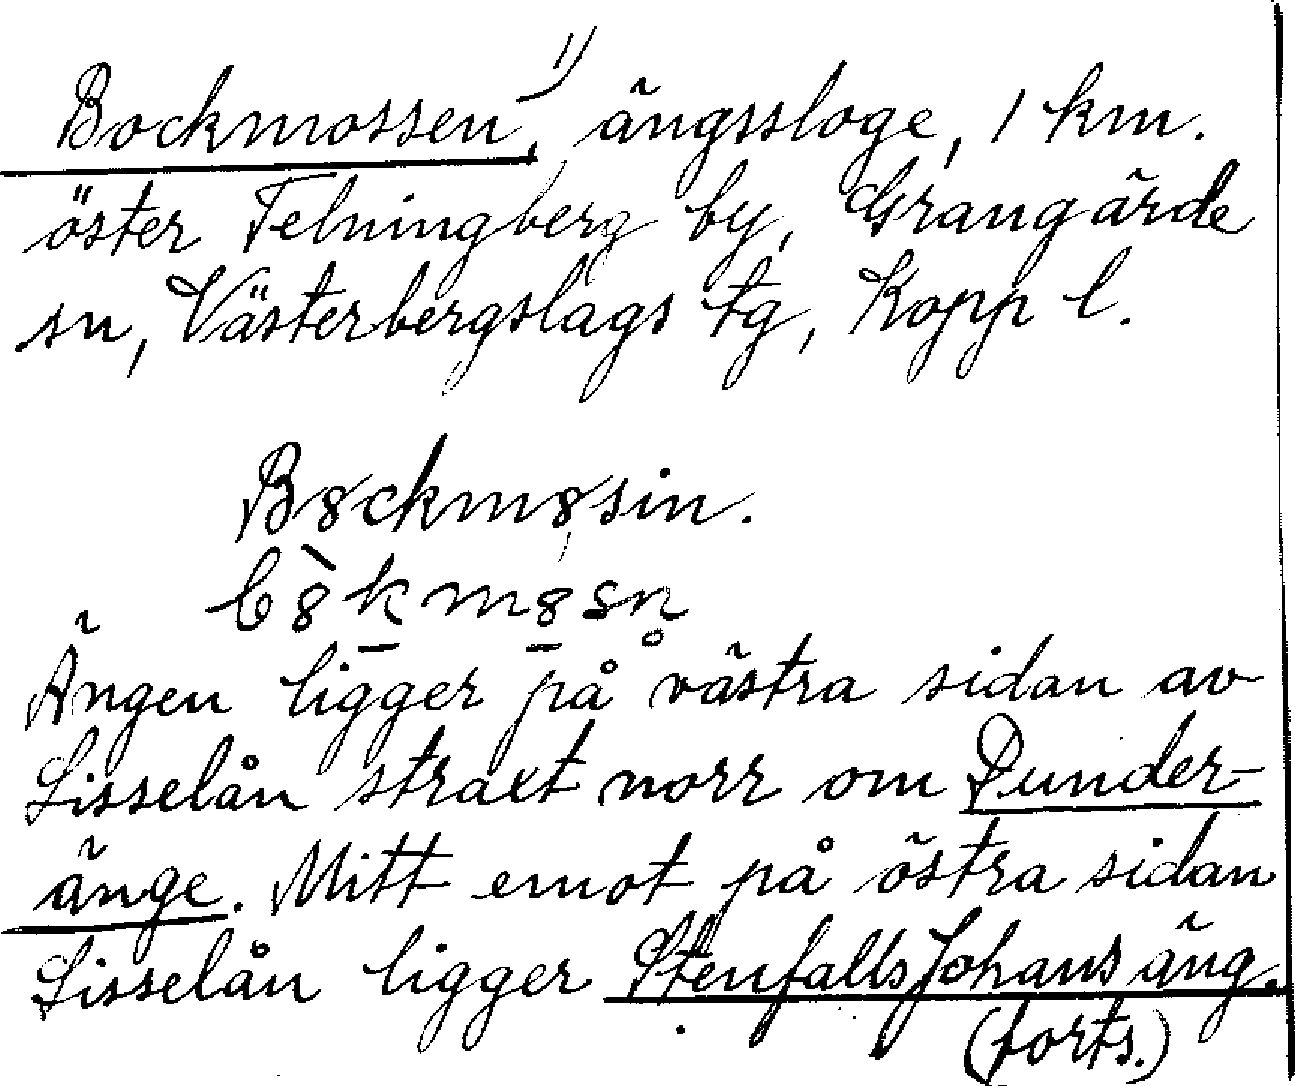 Bockmossen,¹⁾ ängssloge, 1 km.
öster Felningberg by, Grangärde
sn, Västerbergslags tg, Kopp l.
B8ckm8sin.
b8̀km8sn̥
Ängen ligger på västra sidan av
Lisselån straxt norr om Dunder-
änge. Mitt emot på östra sidan
Lisselån ligger StenfallsJohans äng.
(forts.)